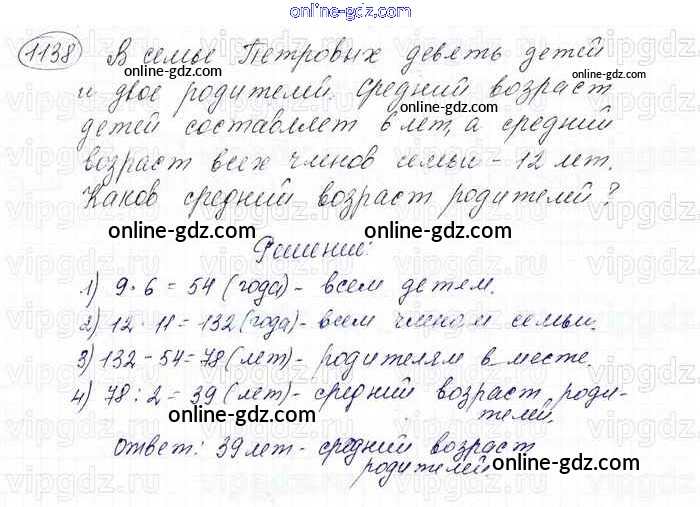 online-gdz.com
1138 В семье Петровых девять детей
online-gdz.com online-gdz.com
и двое родителей. Средний возраст
online-gdz.com
детей составляет 6 лет, а средний
online-gdz.com
возраст всех членов семьи - 12 лет.
Каков средний возраст родителей?
online-gdz.com online-gdz.com
Решение:
1) 9·6 = 54 (года) - всем детям.
online-gdz.com online-gdz.com
2) 12·11 = 132 (года) - всем членам семьи.
3) 132 - 54 = 78 (лет) - родителям вместе.
online-gdz.com
4) 78 : 2 = 39 (лет) - средний возраст роди-
телей.
online-gdz.com online-gdz.com
Ответ: 39 лет - средний возраст
родителей
online-gdz.com